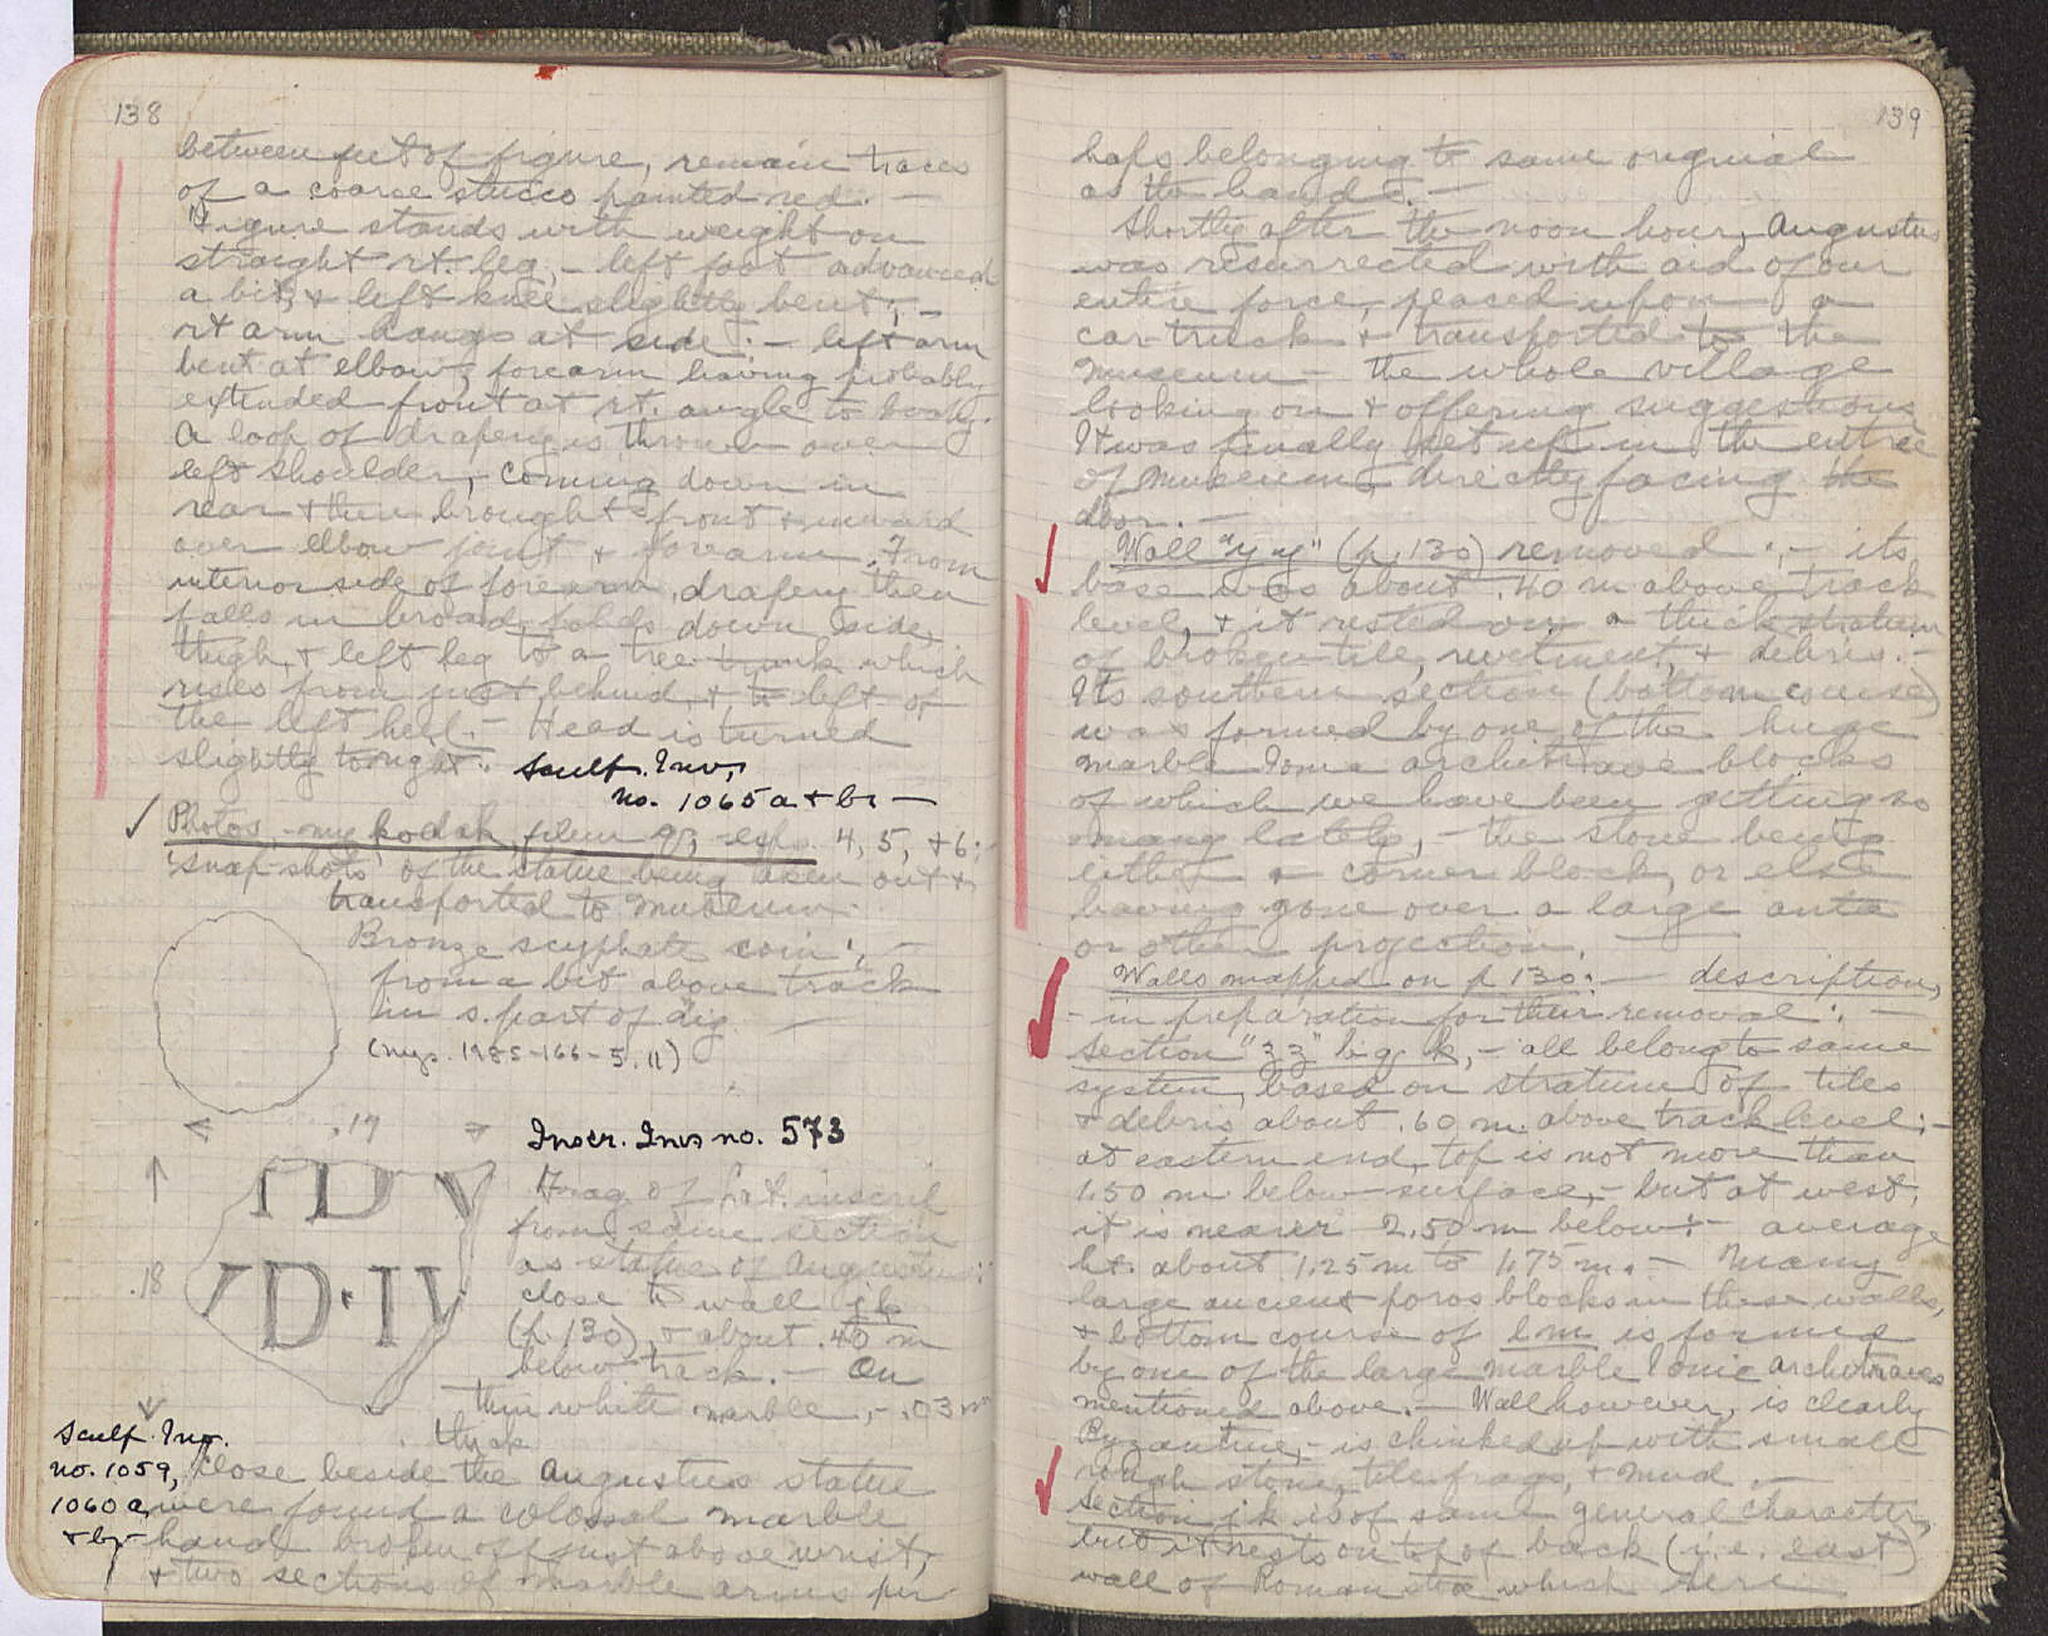 138
between feet of figure, remain traces
of a coarse stucco painted red. —
Figure stands with weight on
straight rt. leg, – left foot advanced
a bit, & left knee slightly bent; –
rt arm hangs at side; – left arm
bent at elbow, forearm having probably
extended front at rt. angle to body.
A loop of drapery is thrown over
left shoulder, coming down in
rear & then brought front & inward
over elbow joint & forearm. From
interior side of forearm, drapery then
falls in broad folds down side,
thigh, & left leg to a tree trunk which
rises from just behind, & to left of
the left heel. – Head is turned
slightly to right. Sculp. Inv.
no. 1065 a & b. —
Photos, – my kodak, film 93, exps. 4, 5, & 6;
snap-shots of the statue being taken out &
transported to Museum.
Bronze scyphate coin; –
from a bit above track
in s. part of dig. —
(1985-166-5.11)
.19
Inscr. Inv. no. 573
.18
ID V
VD·IV
Frag. of Lat. inscrip
from same section
as statue of Augustus:
close to wall jk
(p. 130), & about .40 m
below track. — On
thin white marble, – .03 m
thick
Sculp. Inv.
no. 1059,
1060 a,
& b. –
Close beside the Augustus statue
were found a colossal marble
hand broken off just above wrist,
& two sections of marble arms per
139
haps belonging to same original
as the hand. —
Shortly after the noon hour, Augustus
was resurrected with aid of our
entire force, placed upon a
car-truck & transported to the
Museum – the whole village
looking on & offering suggestions
It was finally set up in the entree
of Museum, directly facing the
door. —
Wall "yy" (p. 130) removed; – its
base was about .40 m above track
level, & it rested on a thick stratum
of broken tile, revetment, & debris. –
Its southern section (bottom course)
was formed by one of the huge
marble Ionic architrave blocks
of which we have been getting so
many lately, – the stone being
either a corner block, or else
having gone over a large anta
or other projection. —
Walls mapped on p 130: — description,
– in preparation for their removal; —
Section "zz" hig k, – all belong to same
system, based on stratum of tiles
& debris about .60 m. above track level; –
at eastern end, top is not more than
1.50 m below surface, – but at west,
it is nearer 2.50 m below; – average
ht. about 1.25 m to 1.75 m. – Many
large ancient poros blocks in these walls,
& bottom course of lm is formed
by one of the large marble Ionic architraves
mentioned above. – Wall however, is clearly
Byzantine, – is chinked up with small
rough stone, tile frags, & mud. —
Section jk is of same general character,
but it rests on top of back (i.e. east)
wall of Roman stoa which here